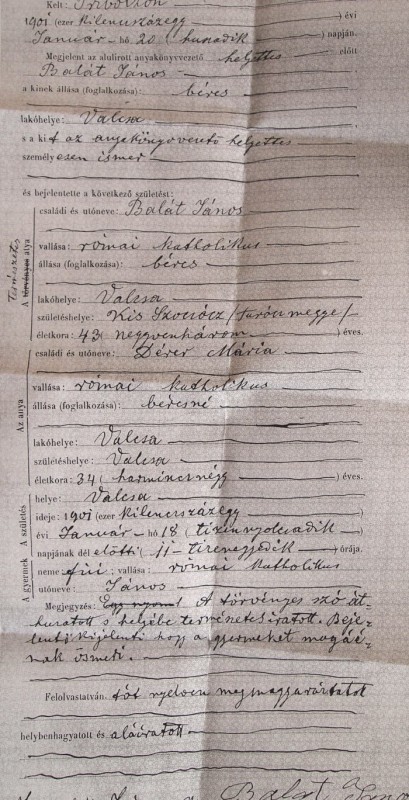 Kelt: Tribotzon
1901 (ezer kilencszázegy ) évi
Január hó 20 ( huszadik ) napján.
Megjelent az alulirott anyakönyvvezető helyettes előtt
Balát János
a kinek állása (foglalkozása): béres
lakóhelye: Valcsa
s a kit az anyakönyvvezető helyettes
személyesen ismer
és bejelentette a következő születést:
családi és utóneve: Balát János
vallása: római katholikus
állása (foglalkozása): béres
lakóhelye: Valcsa
születéshelye: Kis Szocócz /Turócz megye/
életkora: 43 ( negyvenhárom ) éves.
A törvényes atya
Természetes
családi és utóneve: Dérer Mária
vallása: római katholikus
állása (foglalkozása): béresné
lakóhelye: Valcsa
születéshelye: Valcsa
életkora: 34 ( harmincnégy ) éves.
Az anya
helye: Valcsa
ideje: 1901 (ezer kilencszázegy )
évi Január hó 18 ( tizennyolcadik )
napjának dél előtti 11 ( tizenegyedik ) órája.
A születés
neme: fiú; vallása: római katholikus
utóneve: János
A gyermek
Megjegyzés: A törvényes szó át-
huzatott s helyébe természetes iratott. Beje-
lentő kijelenti hogy a gyermeket magáé-
nak ösmeri.
Felolvastatván tót nyelven megmagyaráztatott
helybenhagyatott és aláiratott
Balat János